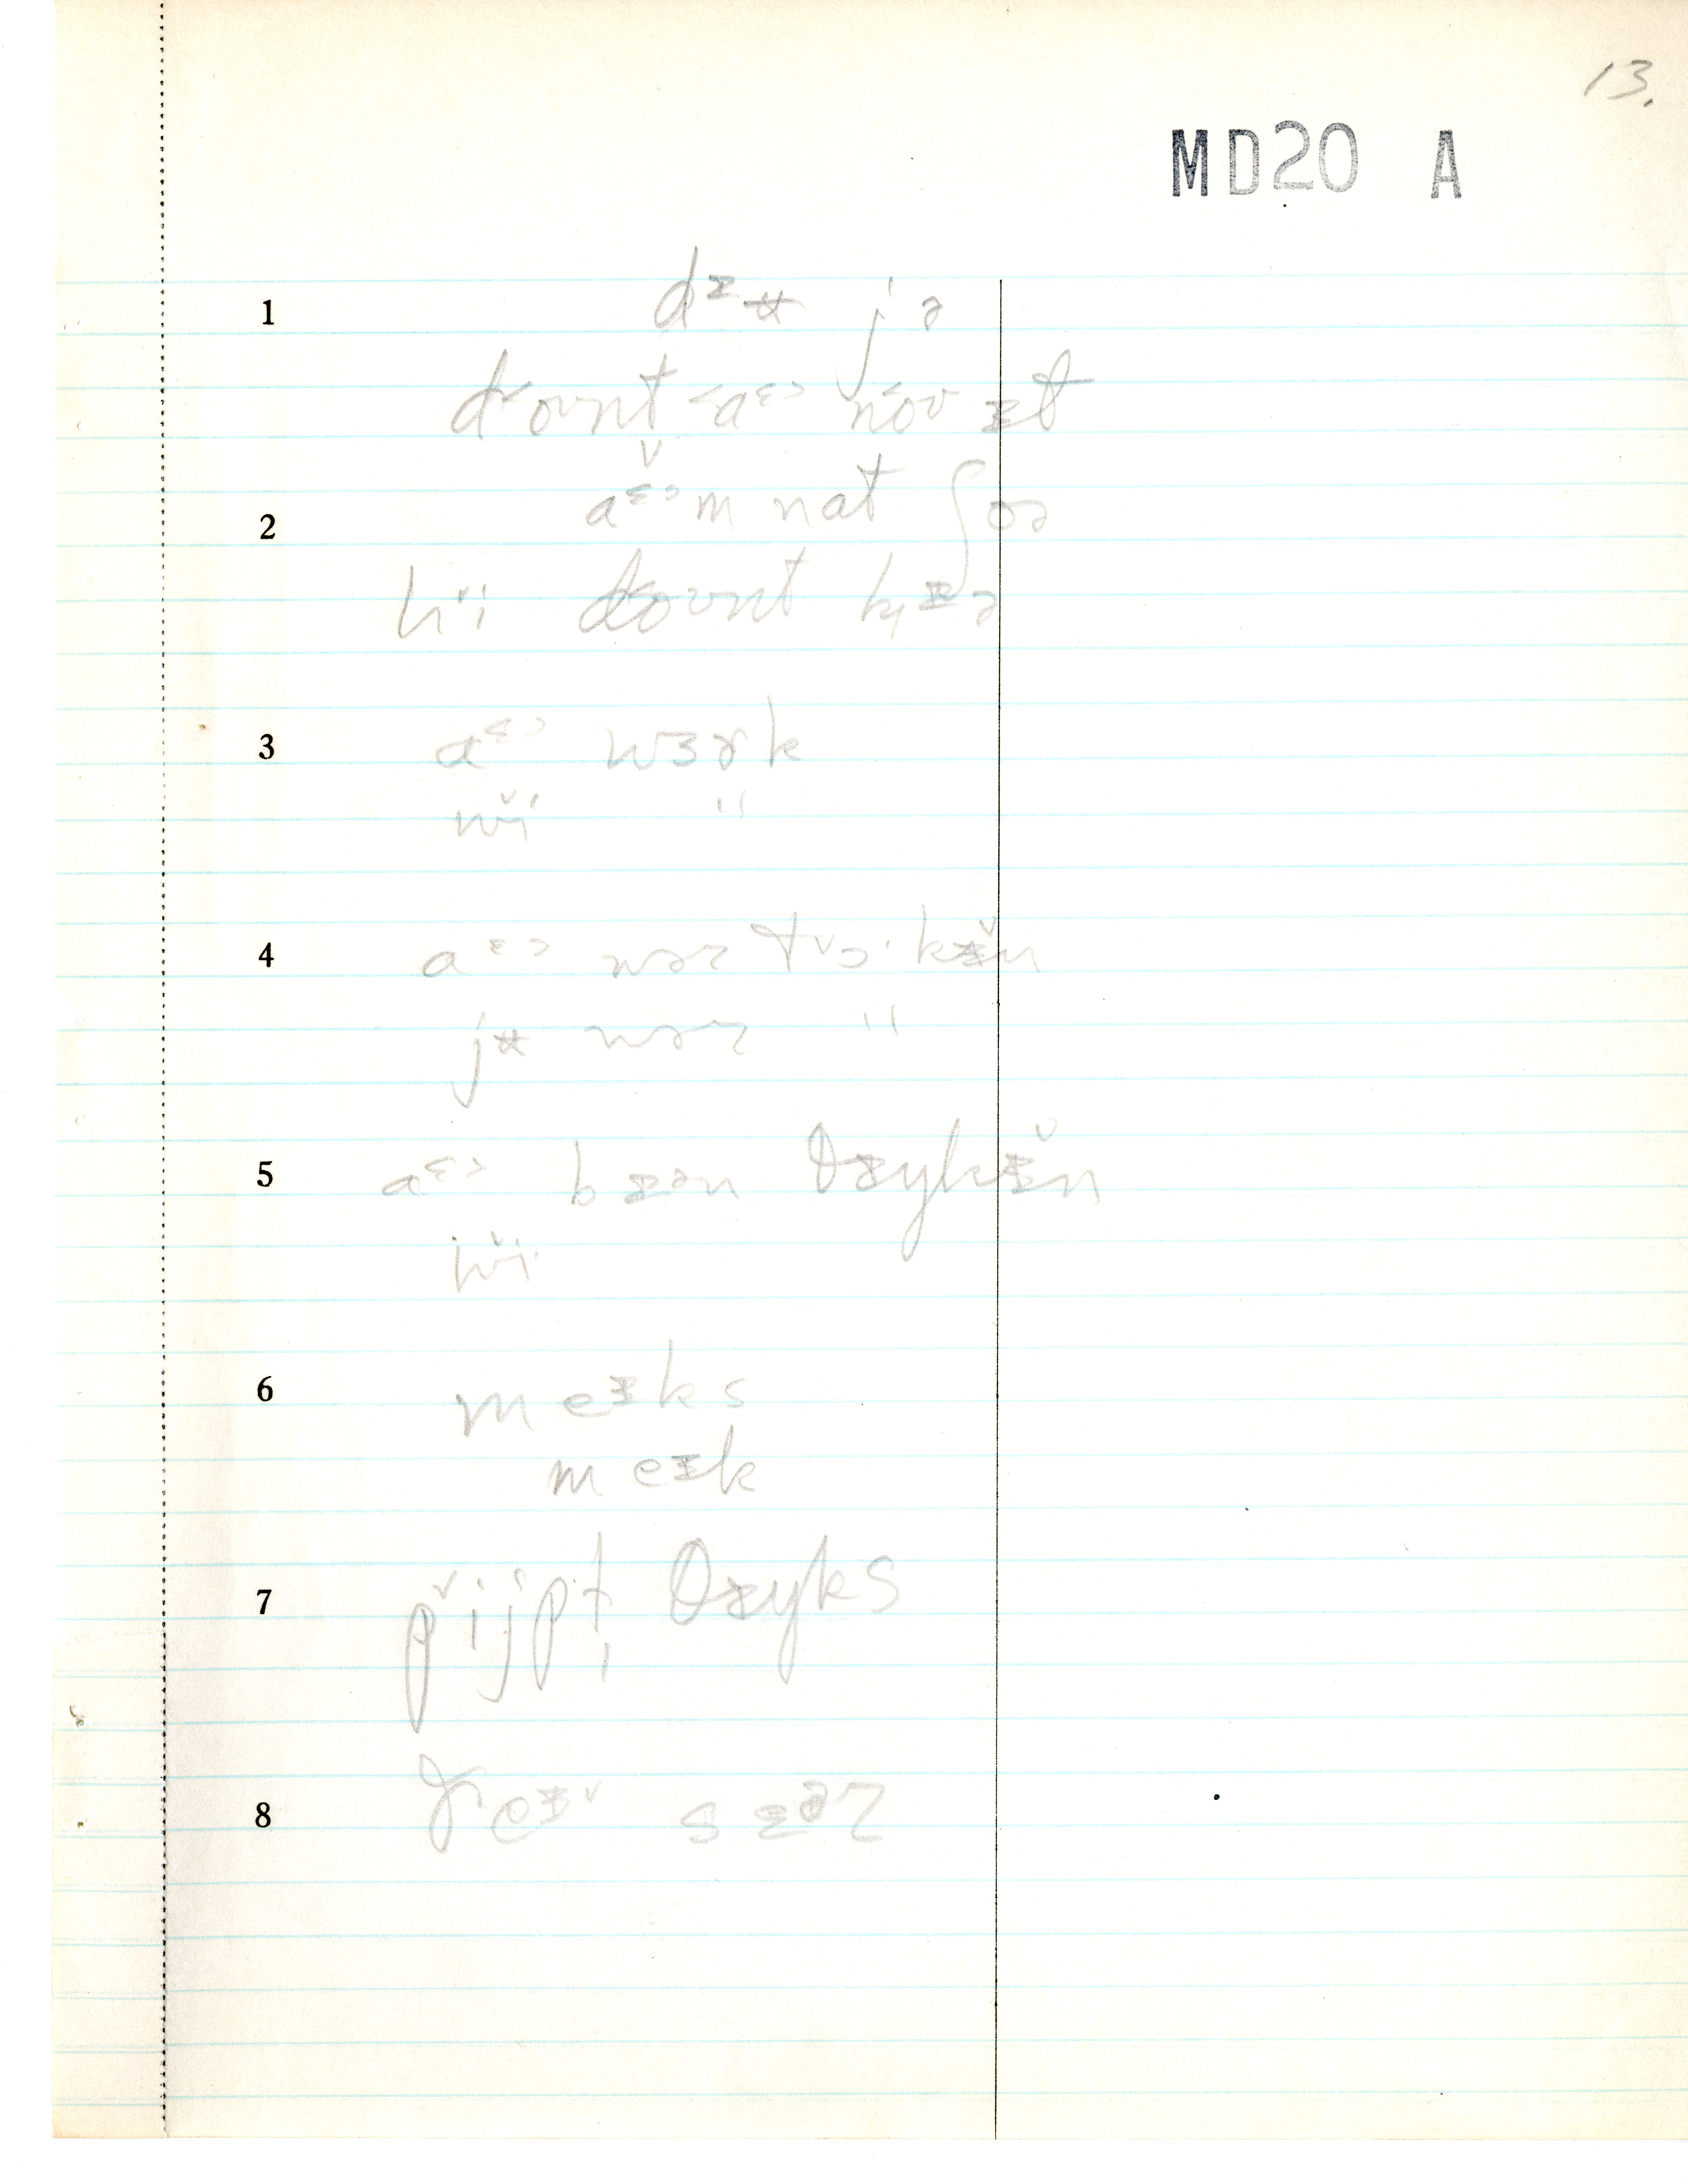 13.
MD20 A
1 dᶻʉ jə
doʊnt ‹aᵋ› noʊ ɪt
2 aᵋᵊm nat ʃoə
hɪ̌i doʊnt kɪə
3 aᵋᵊ wɜɚk
wɪ̌i "
4 aᵋᵊ wəz tɔ·kɪ̌n
jʉ wəz "
5 aᵋᵊ bɪən θɪŋkɪ̌n
wɪ̌i
6 meɪks
meɪk
7 pɪ̌ijpɫ θɪŋks
8 ðeɪ sɛəz